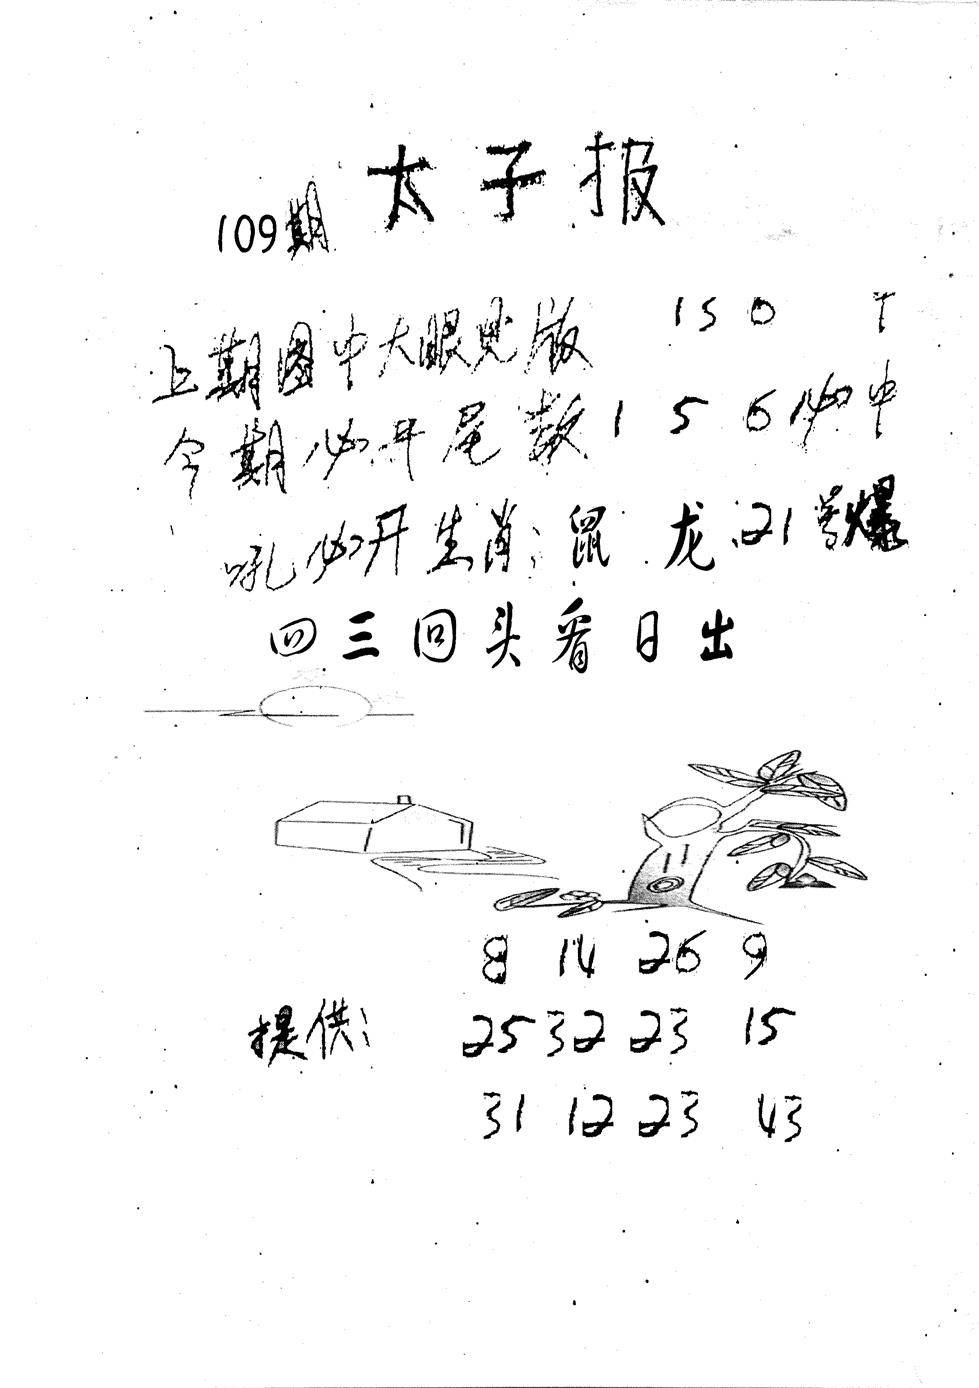 太子报
109期
上期图中大眼见版 150 T
今期必开尾数 1 5 6必中
吼必开生肖:鼠 龙.21号爆
四三回头看日出
8 14 26 9
提供: 25 32 23 15
31 12 23 43